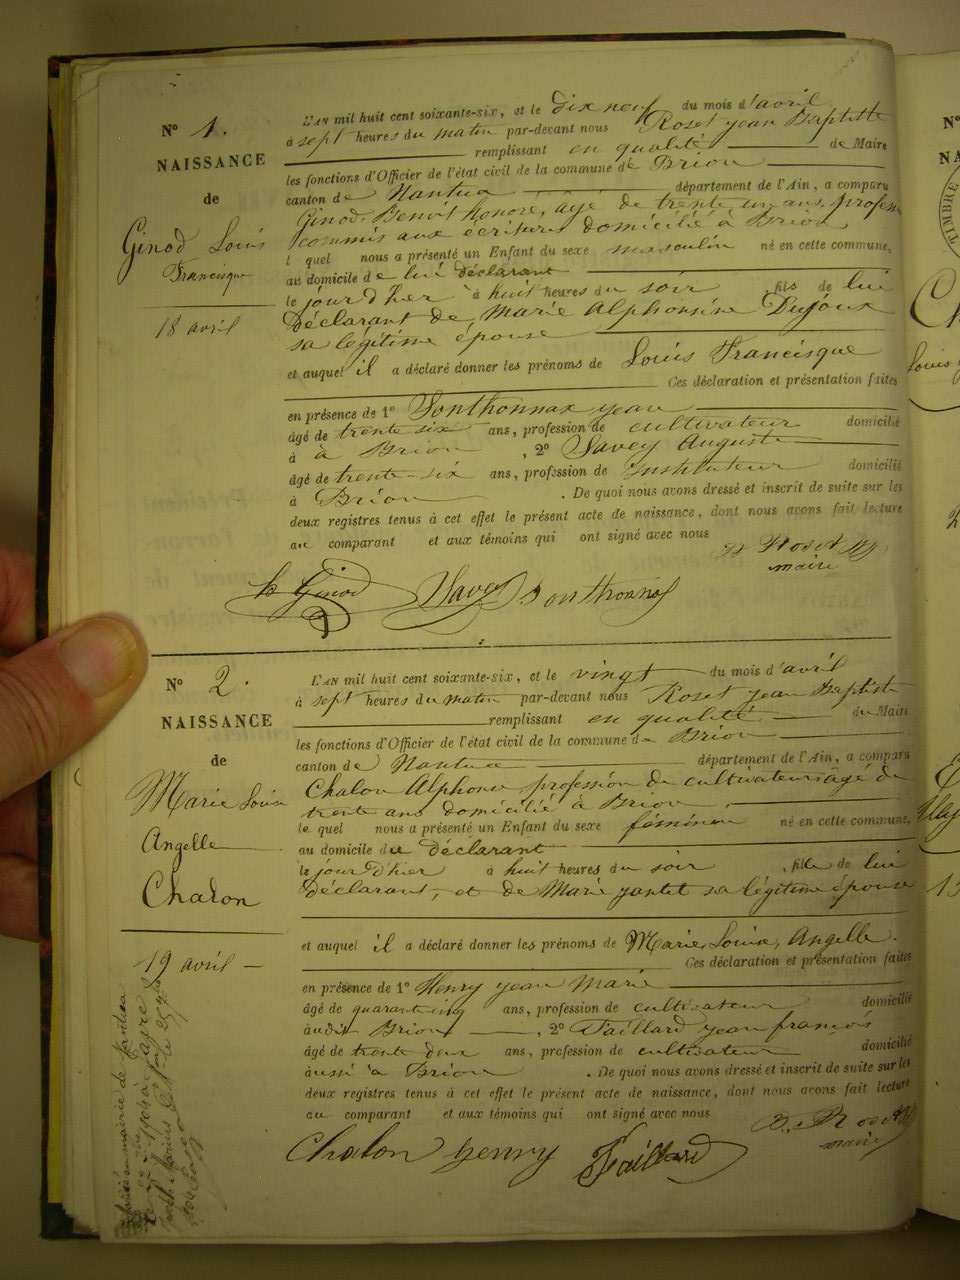 N° 1.
NAISSANCE
de
Ginod Louis
Francisque
18 avril
L'AN mil huit cent soixante-six, et le dix neuf du mois d'avril
à sept heures du matin par-devant nous Roset jean Baptiste
remplissant en qualité de Maire
les fonctions d'Officier de l'état civil de la commune de Brion
canton de Nantua département de l'Ain, a comparu
Ginod Benoit honoré, âgé de trente un ans, profession
commis aux écritures domicilié à Brion
l quel nous a présenté un Enfant du sexe masculin né en cette commune,
au domicile de lui déclarant
le jour d'her à huit heures du soir, fils de lui
Déclarant de Marie Alphonsine Dujoux
sa légitime épouse
et auquel il a déclaré donner les prénoms de Louis Francisque
Ces déclaration et présentation faites
en présence de 1° Sonthonnax jean
âgé de trente six ans, profession de cultivateur domicilié
à à Brion, 2° Savey Auguste
âgé de trente-six ans, profession de Instituteur domicilié
à Brion. De quoi nous avons dressé et inscrit de suite sur les
deux registres tenus à cet effet le présent acte de naissance, dont nous avons fait lecture
au comparant et aux témoins qui ont signé avec nous
Roset
maire
h Ginod Savey Sonthonnax
N° 2.
NAISSANCE
de
Marie Louise
Angelle
Chalon
19 avril
L'AN mil huit cent soixante-six, et le vingt du mois d'avril
à sept heures du matin par-devant nous Roset jean Baptiste
remplissant en qualité du Maire
les fonctions d'Officier de l'état civil de la commune de Brion
canton de Nantua département de l'Ain, a comparu
Chalon Alphonse profession de cultivateur âgé de
trente ans domicilié à Brion
le quel nous a présenté un Enfant du sexe féminin né en cette commune,
au domicile du Déclarant
le jour d'hier à huit heures du soir, fille de lui
Déclarant, et de Marie jantet sa légitime épouse
et auquel il a déclaré donner les prénoms de Marie, Louise, Angelle.
Ces déclaration et présentation faites
en présence de 1° Henry jean Marie
âgé de quarante cinq ans, profession de cultivateur domicilié
audit Brion, 2° Taillard jean françois
âgé de trente deux ans, profession de cultivateur domicilié
aussi à Brion. De quoi nous avons dressé et inscrit de suite sur les
deux registres tenus à cet effet le présent acte de naissance, dont nous avons fait lecture
au comparant et aux témoins qui ont signé avec nous
Roset
maire
Chalon henry Taillard
mairie de Nantua
TIMBRE